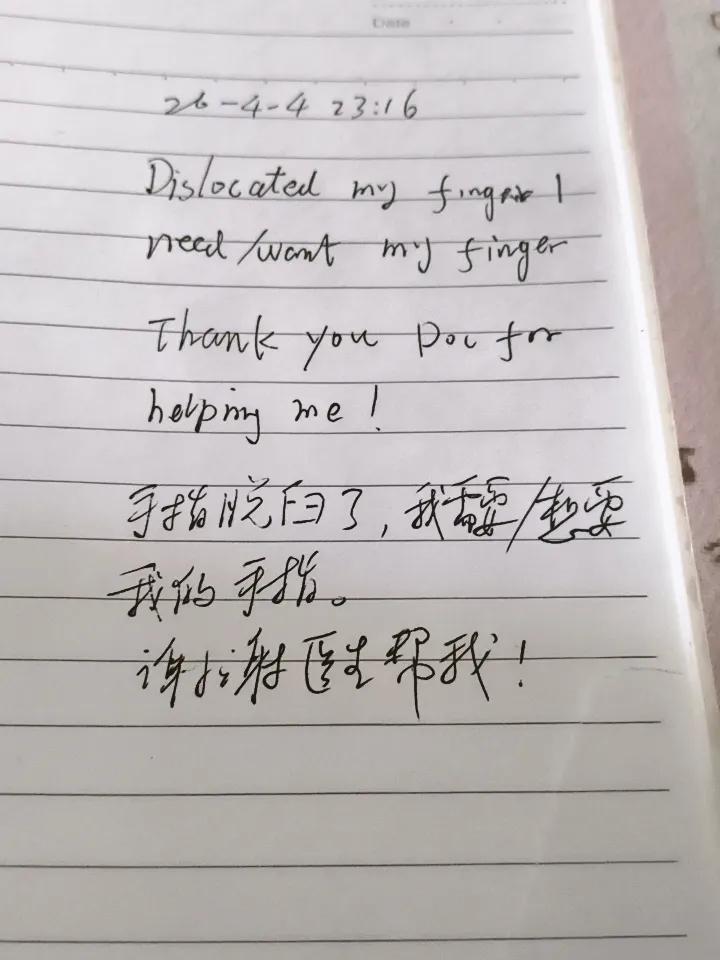 Date
26-4-4 23:16
Dislocated my finger I
need/want my finger
Thank you Doc for
helping me!
手指脱臼了,我需要/想要
我的手指。
谢谢医生帮我!